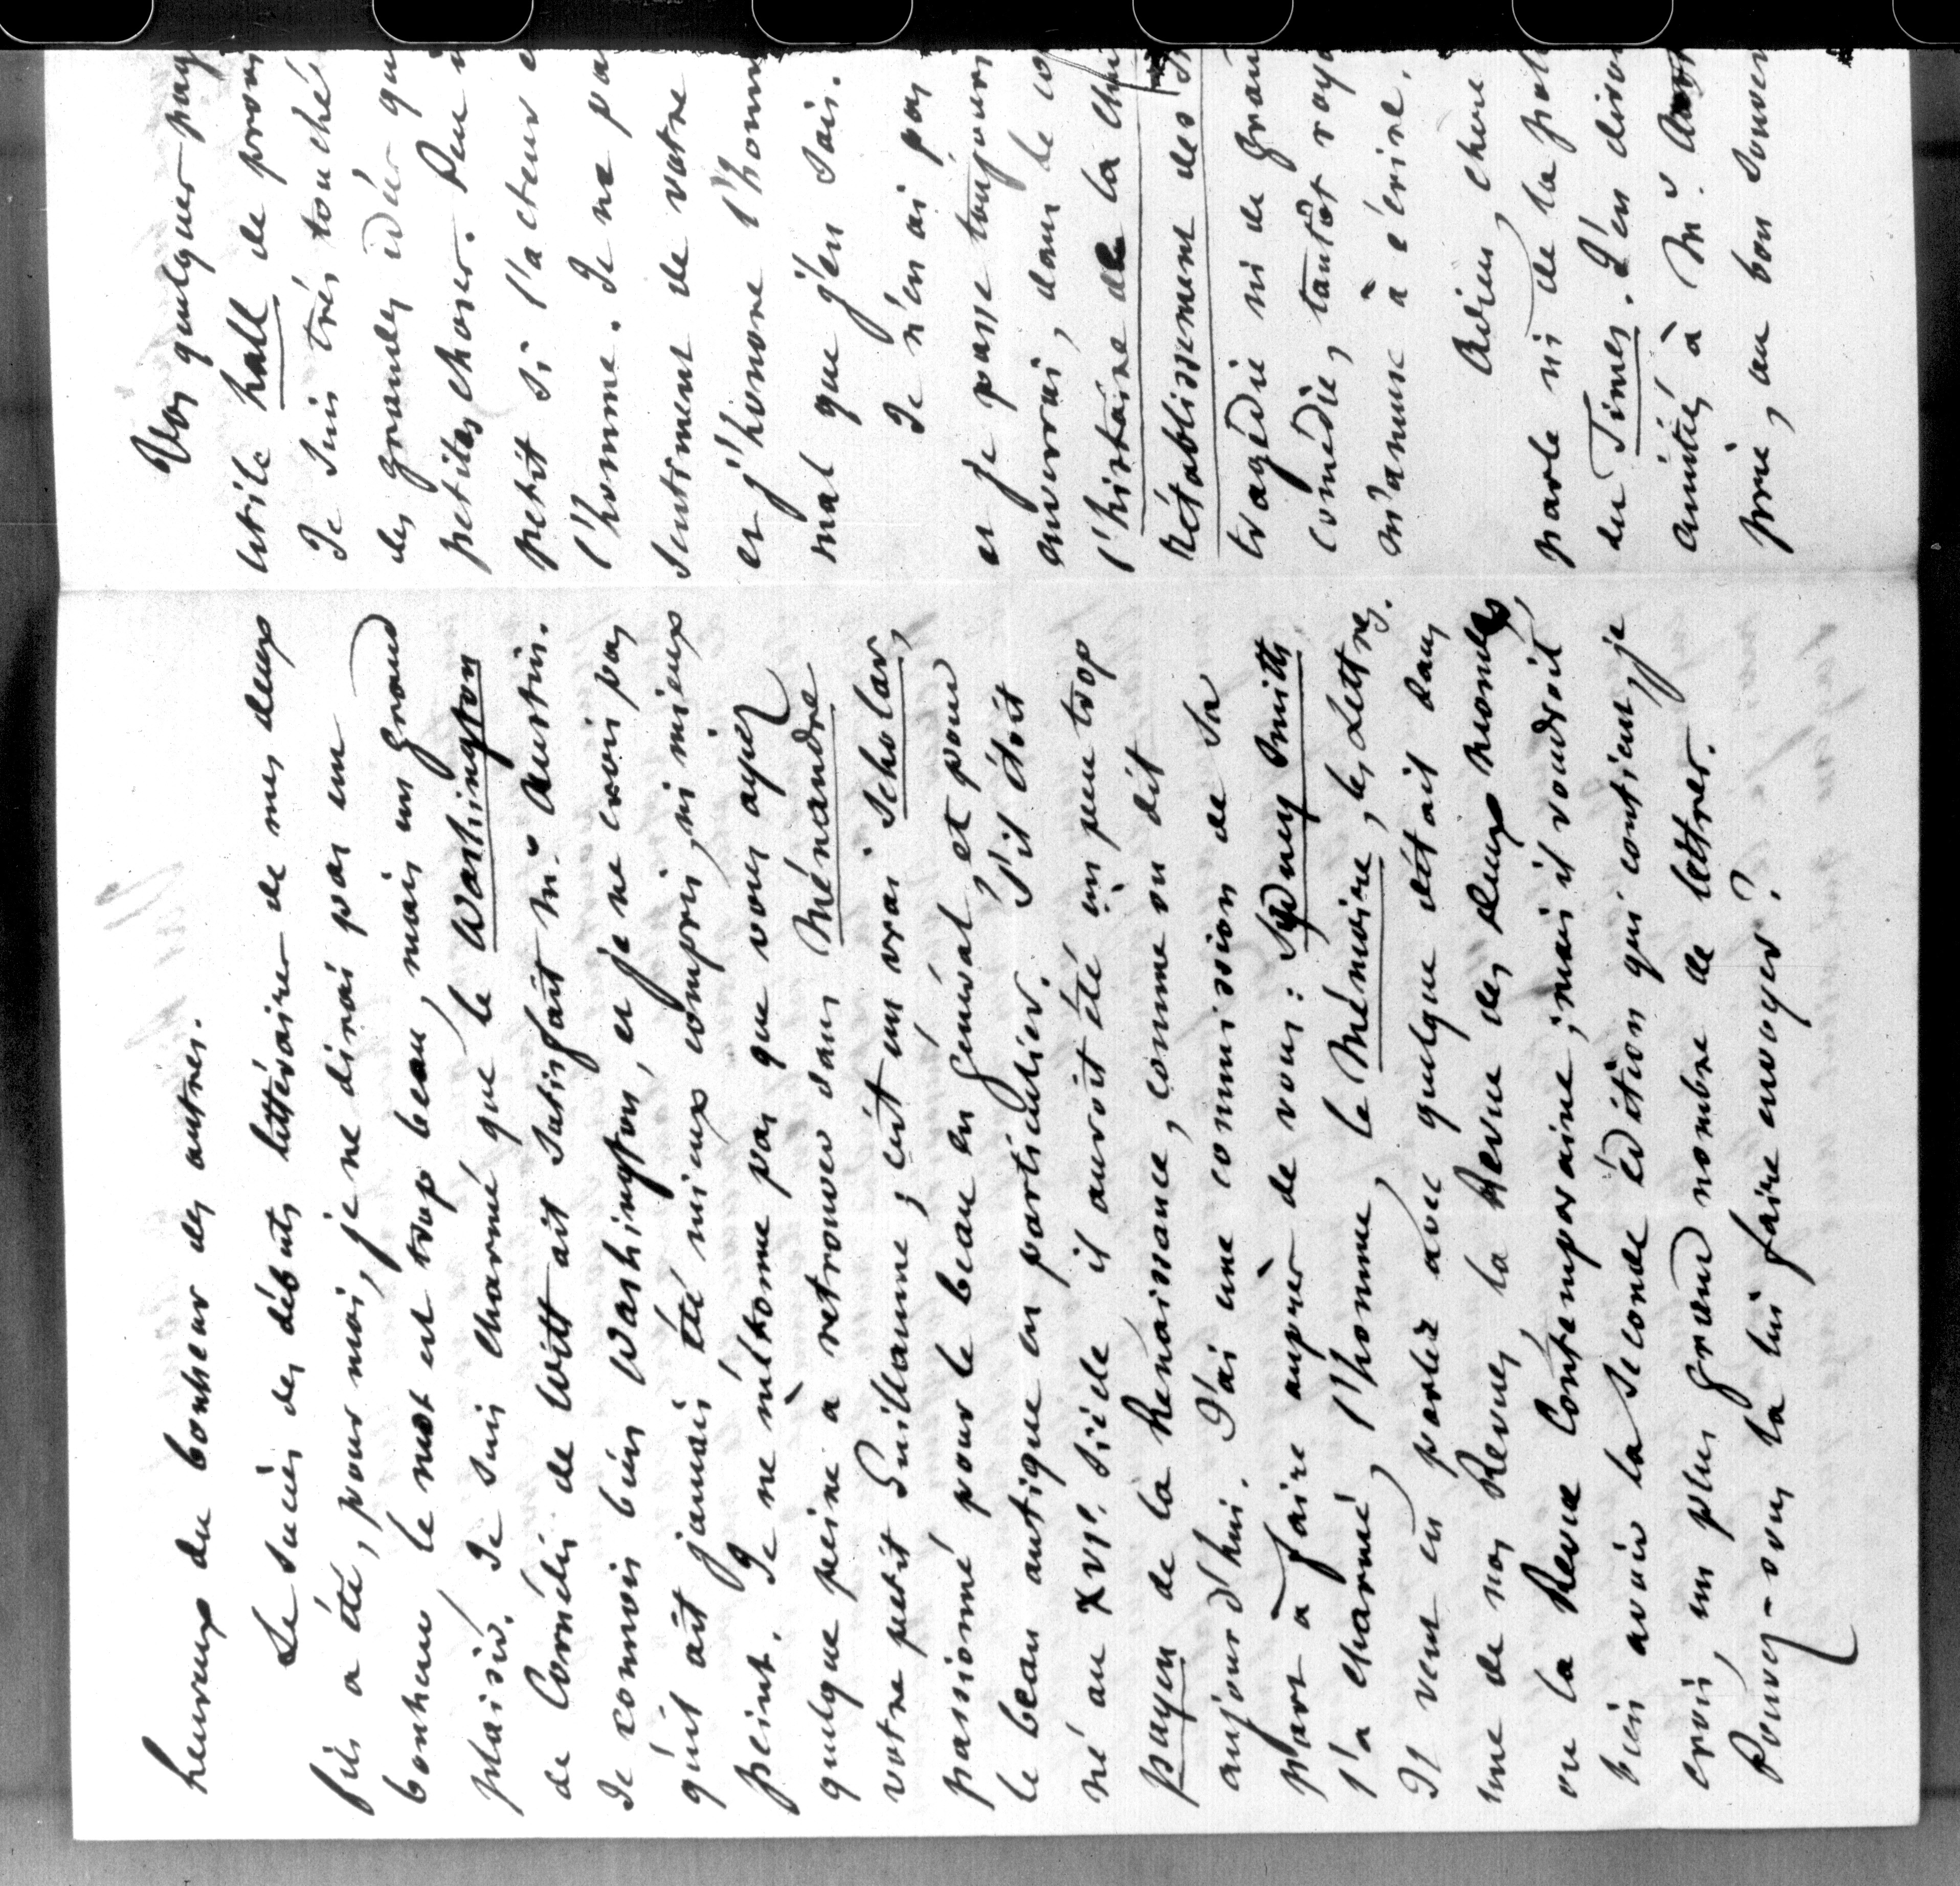 heureux du bonheur des autres.
Le succès des débuts littéraires de mes deux
fils a été, pour moi, je ne dirai pas un
bonheur, le mot est trop beau, mais un grand
plaisir. Je suis charmé que le Washington
de Cornélis de Witt ait satisfait Mr Austin.
Je connois bien Washington, et je ne crois pas
qu'il ait jamais été mieux compris, ni mieux
peint. Je ne m'étonne pas que vous ayez
quelque peine à retrouver dans Ménandre
votre petit Guillaume ; c'est un vrai scholar,
passionné pour le beau en général, et pour
le beau antique en particulier. S'il étoit
né au XVIe siècle, il auroit été un peu trop
payen de la Renaissance, comme on dit
aujourd'hui. J'ai une commission de sa
part à faire auprès de vous : Sydney Smith
l'a charmé, l'homme, le Mémoire, les Lettres.
Il veut en parler avec quelque détail dans
une de nos Revues, la Revue des deux mondes,
ou la Revue Contemporaine ; mais il voudroit
bien avoir la seconde édition qui contient, je
crois, un plus grand nombre de lettres.
Pouvez-vous la lui faire envoyer ?
Vos quelques pag
hall de
Je suis très touché
des grandes idées qu
petites choses. Peu i
petit si l'acteur e
l'homme. Je ne pa
sentiment de votre
et j'honore l'homm
mal que j'en sais.
Je n'en ai pas
et je passe toujours
dans le co
l'histoire de la chu
Rétablissement des St
tragédie ni de gran
comédie, tantôt roya
m'amuse à l'écrire.
Adieu, chere
parle ni de la pol
du Times. J'en
amitiés à Mr. Aust
prie, au bon souven